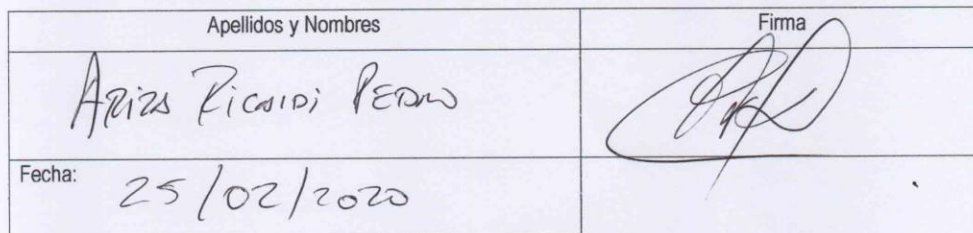 Apellidos y Nombres
Firma
Ariza Ricaldi Pedro
Fecha:
25/02/2020